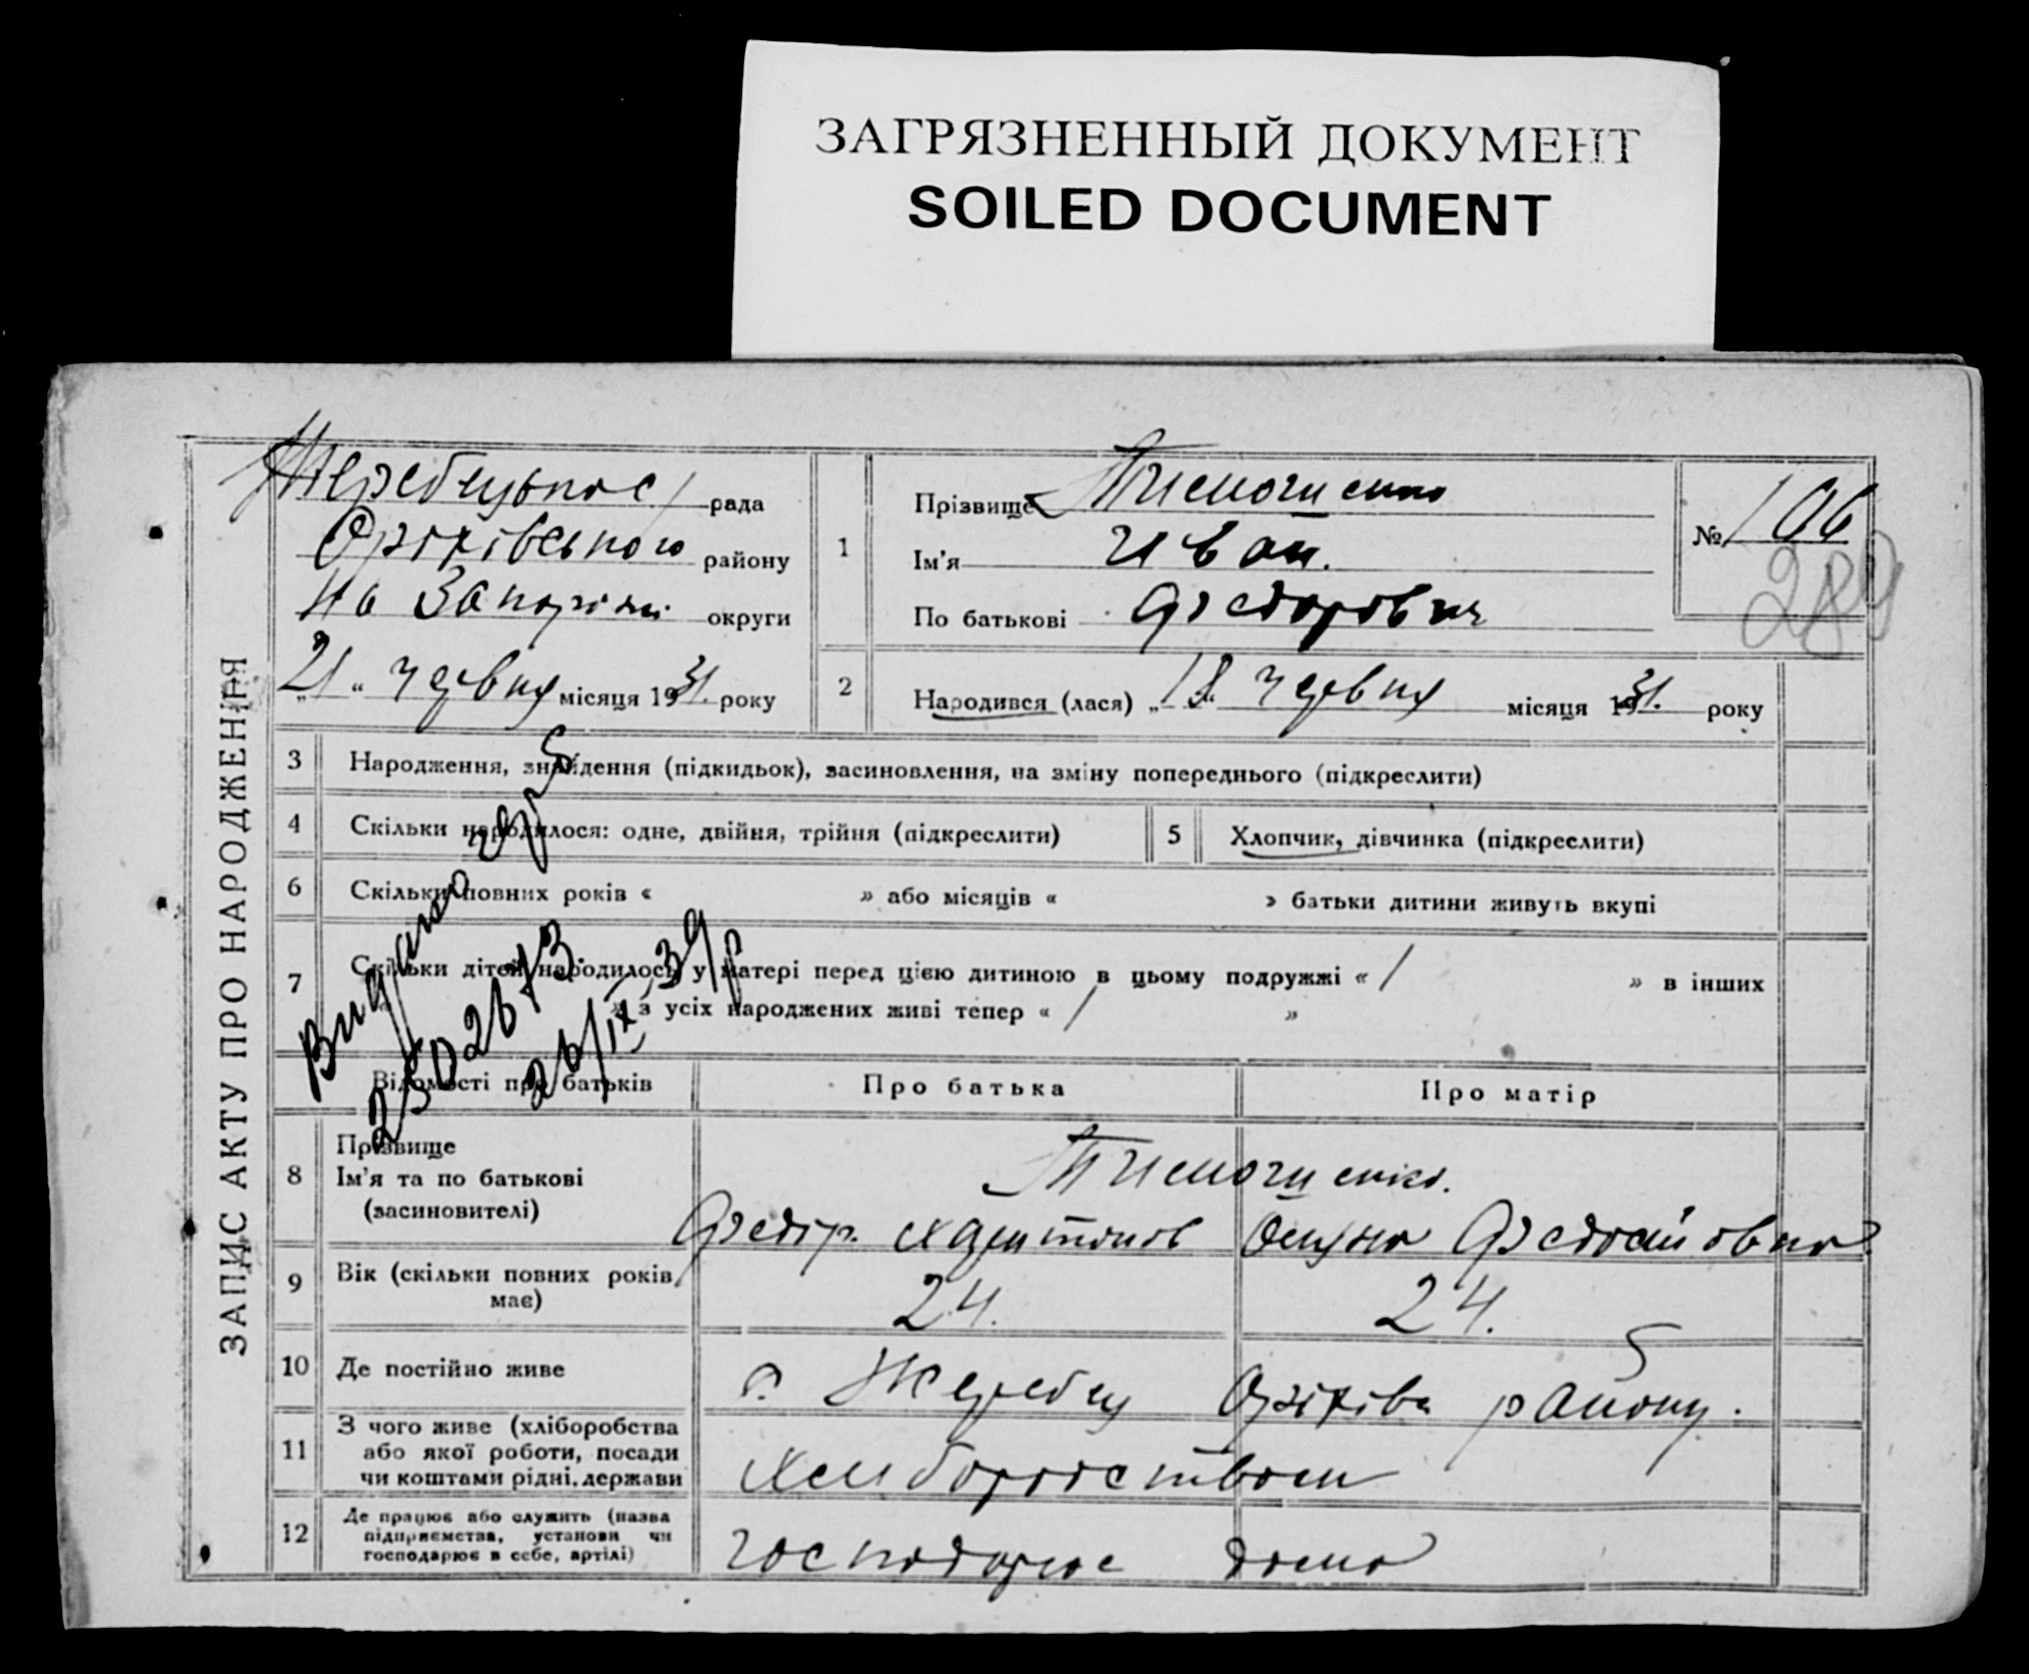 ЗАГРЯЗНЕННЫЙ ДОКУМЕНТ
SOILED DOCUMENT
ЗАПИС АКТУ ПРО НАРОДЖЕННЯ
Жеребецької рада
Оріхівського району
На Запоріжі округи
„21“ червня місяця 1931. року
1
Прізвище Тимошенко
Ім'я Иван.
По батькові Федорович
№ 106
289
2 Народився (лася) „18“ червня місяця 1931. року
3 Народження, знайдення (підкидьок), засиновлення, на зміну попереднього (підкреслити)
4 Скільки народилося: одне, двійня, трійня (підкреслити)
5 Хлопчик, дівчинка (підкреслити)
6 Скільки повних років « » або місяців « » батьки дитини живуть вкупі
7 Скільки дітей народилось у матері перед цією дитиною в цьому подружжі « 1 » в інших
» з усіх народжених живі тепер « 1 »
Видано
26/IX 39 р
Відомості про батьків
Про батька
Про матір
8 Прізвище
Ім'я та по батькові
(засиновителі)
Тимошенко.
Федір
9 Вік (скільки повних років
має)
24.
24.
10 Де постійно живе
с. Жеребец Оріхівс району.
11 З чого живе (хліборобства
або якої роботи, посади
чи коштами рідні, держави
Хлиборобством
12 Де працює або служить (назва
підприємства, установи чи
господарює в себе, артілі)
господарює дома